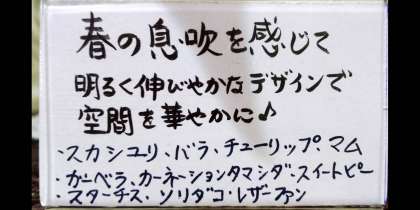 春の息吹を感じて
明るく伸びやかなデザインで
空間を華やかに♪
・スカシユリ、バラ、チューリップ、マム
・ガーベラ、カーネーションタマシダ・スイートピー
・スターチス・ソリダコ・レザーファン